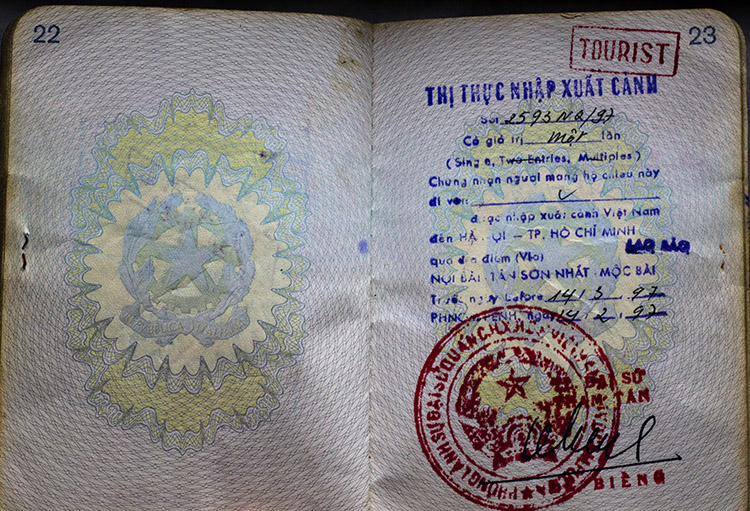 22
23
TOURIST
THỊ THỰC NHẬP XUẤT CẢNH
Số: 2593 NQ/97
Có giá trị một lần
(Single, Two Entries, Multiples)
Chứng nhận người mang hộ chiếu này
đi với:
được nhập xuất cảnh Việt Nam
đến HÀ NỘI - TP. HỒ CHÍ MINH
qua địa điểm (Via)
NỘI BÀI - TÂN SƠN NHẤT - MỘC BÀI
Trước ngày before 14.3.97
PHNOMPENH, ngày 14.2.97
ĐẠI SỨ
THAM TÁN
BIÊNG